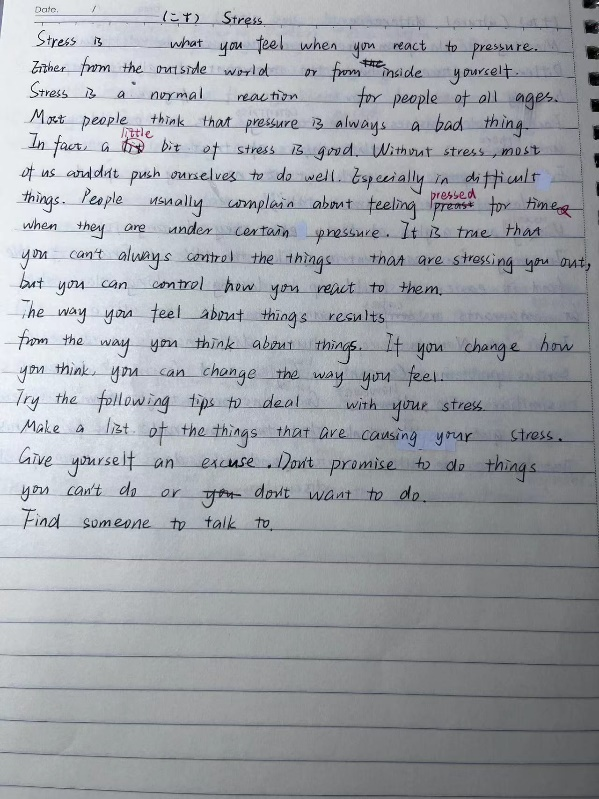 Date. /
(二十) Stress
Stress is what you feel when you react to pressure.
Either from the outside world or from the inside yourself.
Stress is a normal reaction for people of all ages.
Most people think that pressure is always a bad thing.
In fact, a little bit of stress is good. Without stress, most
of us wouldn't push ourselves to do well. Especially in difficult
things. People usually complain about feeling pressed for time
when they are under certain pressure. It is true that
you can't always control the things that are stressing you out,
but you can control how you react to them.
The way you feel about things results
from the way you think about things. If you change how
you think, you can change the way you feel.
Try the following tips to deal with your stress
Make a list of the things that are causing your stress.
Give yourself an excuse. Don't promise to do things
you can't do or don't want to do.
Find someone to talk to.